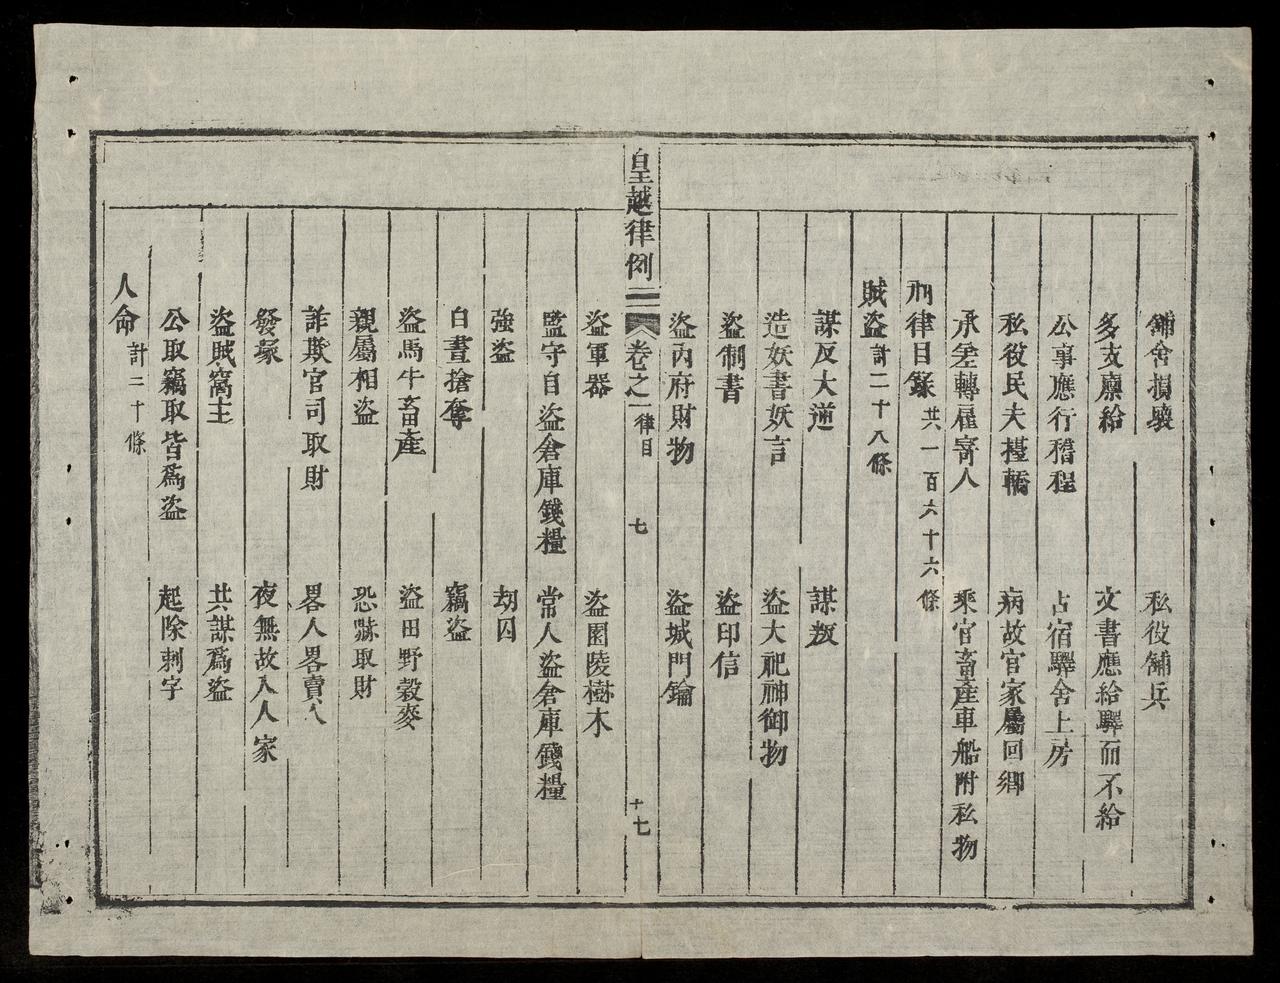 舖舍損壞 私役舖兵
多支廪給 文書應給驛而不給
公事應行稽程 占宿驛舍上房
私役民夫擡轎 病故官家屬回鄉
承差轉雇寄人 乘官畜產車船附私物
刑律目錄 共一百六十六條
賊盜 計二十八條
謀反大逆 謀叛
造妖書妖言 盜大祀神御物
盜制書 盜印信
盜內府財物 盜城門鑰
皇越律例二 卷之一 律目 七 十七
盜軍器 盜園陵樹木
監守自盜倉庫錢糧 常人盜倉庫錢糧
強盜 刼囚
白晝搶奪 竊盜
盜馬牛畜產 盜田野穀麥
親屬相盜 恐嚇取財
詐欺官司取財 畧人畧賣人
發塚 夜無故入人家
盜賊窩主 共謀爲盜
公取竊取皆爲盜 起除刺字
人命 計二十條